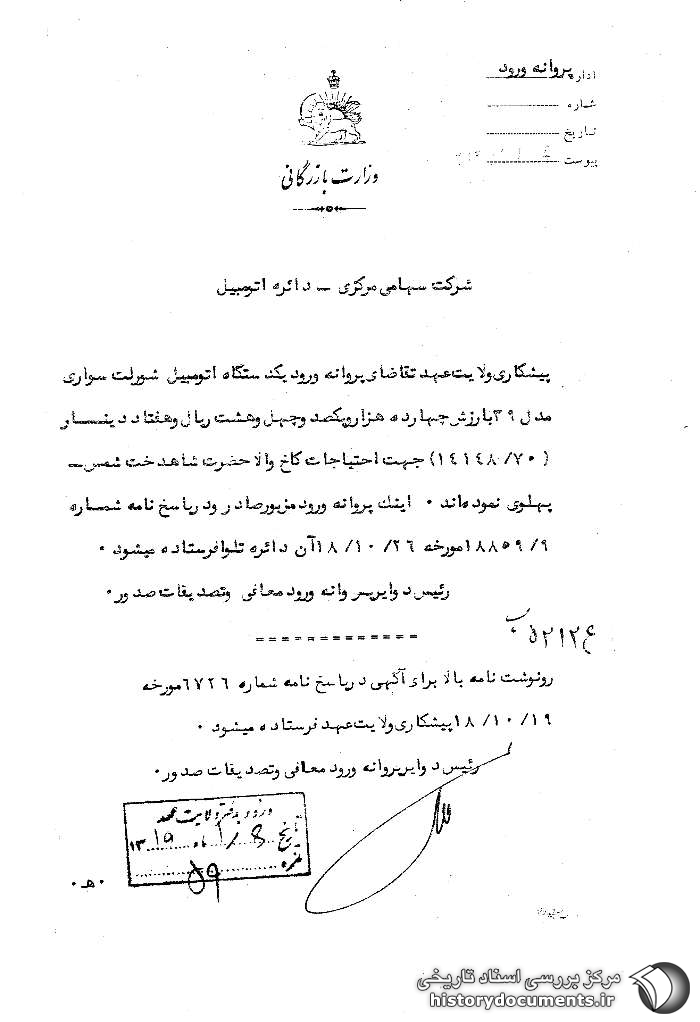 اداره پروانه ورود
شماره
تاریخ
پیوست
وزارت بازرگانی
شرکت سهامی مرکزی - دائره اتومبیل
پیشکاری ولایت‌عهد تقاضای پروانه ورود یکدستگاه اتومبیل شورلت سواری
مدل ۳۹ بارزش چهارده هزارو یکصد وچهل وهشت ریال وهفتاد دینار
(۱۴۱۴۸/۷۰) جهت احتیاجات کاخ والاحضرت شاهدخت شمس -
پهلوی نموده‌اند ۰ اینك پروانه ورود مزبور صادر ودر پاسخ نامه شماره
۱۸۸۵۹/۹ مورخه ۱۸/۱۰/۲۶ آن دائره تلوا فرستاده میشود ۰
رئیس دوایر پروانه ورود معافی وتصدیقات صدور ۰
=============
رونوشت نامه بالا برای آگهی درپاسخ نامه شماره ۶۷۲۶ مورخه
۱۸/۱۰/۱۹ پیشکاری ولایت‌عهد فرستاده میشود ۰
رئیس دوایر پروانه ورود معافی وتصدیقات صدور ۰
ورود بدفتر ولایت عهد
تاریخ ۸ / ۱ ماه ۱۳۱۹
نمره ۵۹
۰ ه‍ ۰
مرکز بررسی اسناد تاریخی
historydocuments.ir